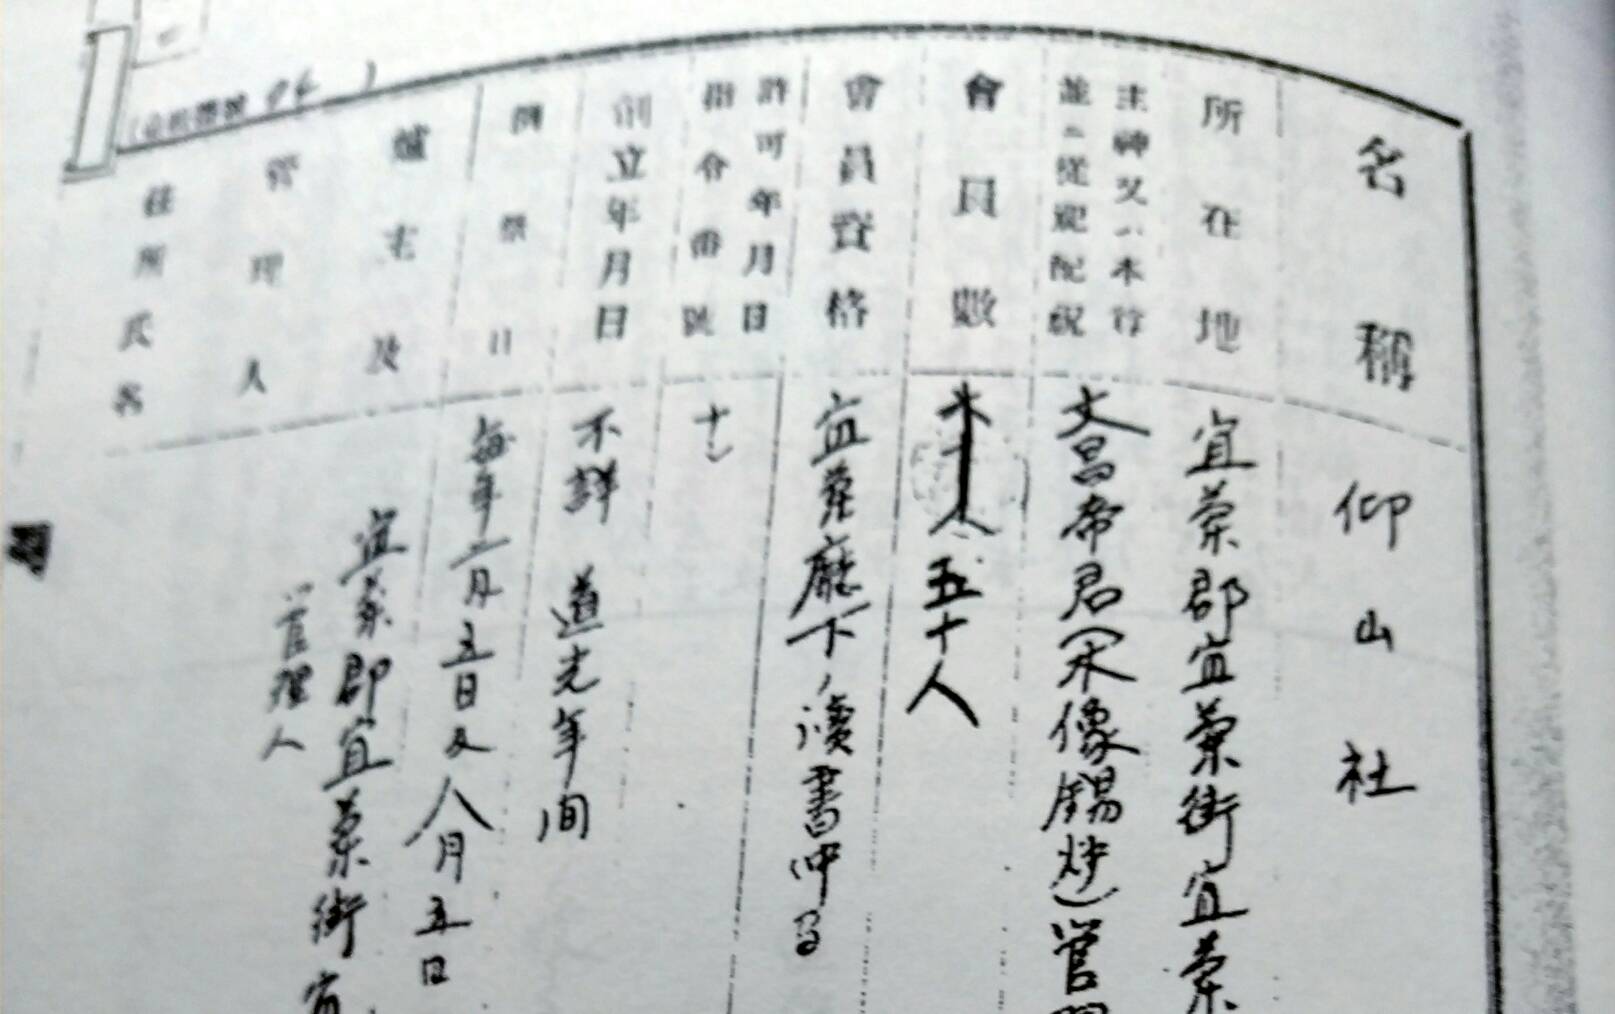 名稱
仰山社
所在地
宜蘭郡宜蘭街宜蘭
主神又ハ本尊
並ニ從祀配祀
文昌帝君(木像錫炉)管理
會員數
五十人
會員資格
宜蘭廳下ノ讀書仲间
許可年月日
指令番號
ナシ
創立年月日
不詳 道光年间
例祭日
每年二月五日及八月五日
爐主及
管理人
住所氏名
宜蘭郡宜蘭街宜
管理人